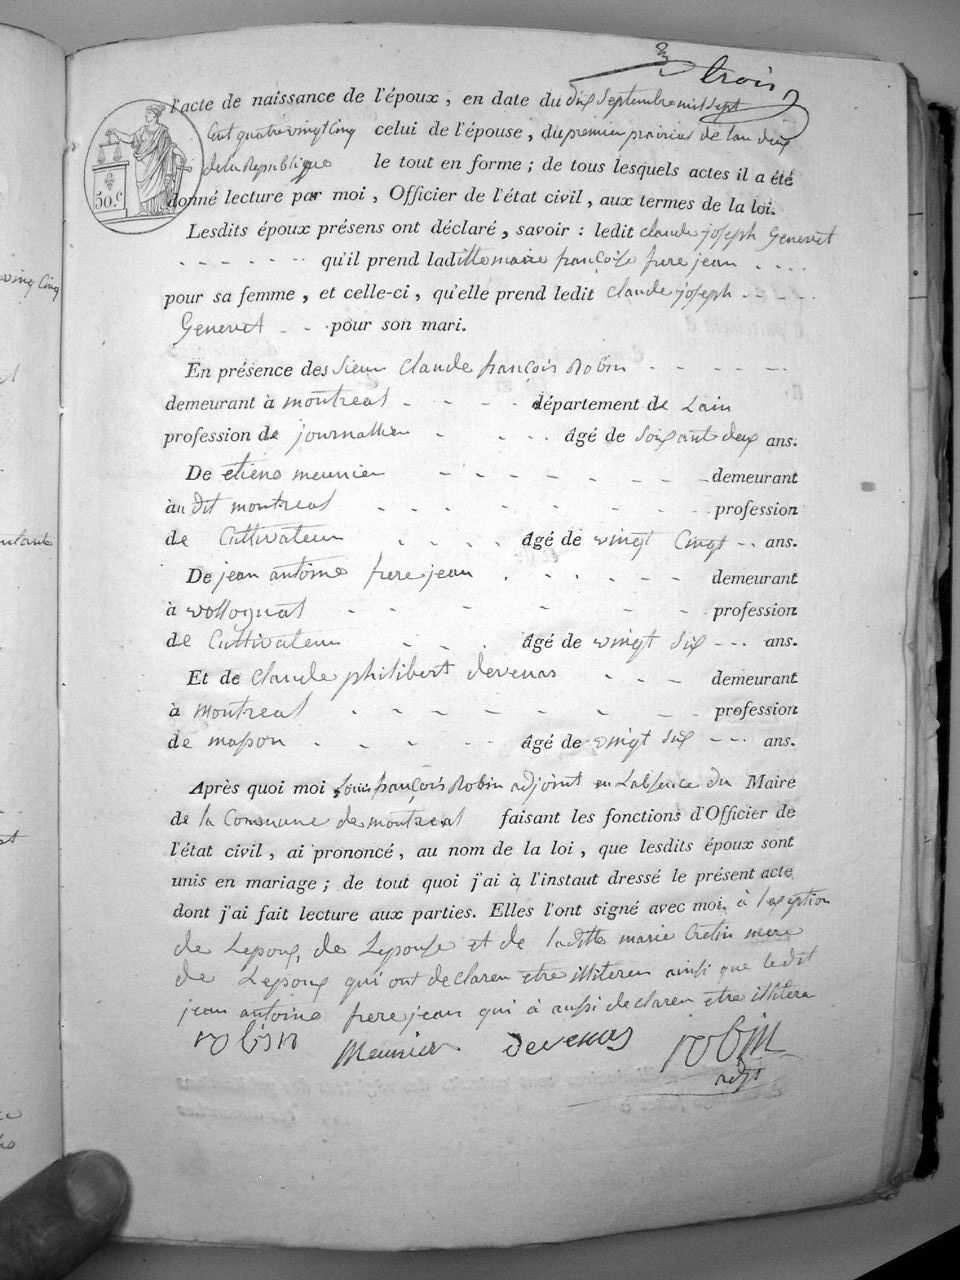 trois
l'acte de naissance de l'époux, en date du dix Septembre mil Sept
Cent quatre vingt Cinq celui de l'épouse, du premier prairial de lan deux
de la Republique le tout en forme; de tous lesquels actes il a été
50.c donné lecture par moi, Officier de l'état civil, aux termes de la loi.
Lesdits époux présens ont déclaré, savoir : ledit claude joseph Genevet
qu'il prend laditte marie françoise frere jean
pour sa femme, et celle-ci, qu'elle prend ledit claude joseph
Genevet pour son mari.
En présence des Sieur Claude françois Robin
demeurant à montreal département de Lain
profession de journallier âgé de Soixante deux ans.
De etiene meunier demeurant
à u dit montreal profession
de Cultivateur âgé de vingt Cinq ans.
De jean antoine frere jean demeurant
à vollognat profession
de Cultivateur âgé de vingt Six ans.
Et de Claude philibert devenas demeurant
à montreal profession
de masson âgé de vingt Six ans.
Après quoi moi Louis françois Robin adjoint en Labsence du Maire
de la Commune de montreal faisant les fonctions d'Officier de
l'état civil, ai prononcé, au nom de la loi, que lesdits époux sont
unis en mariage; de tout quoi j'ai à l'instaut dressé le présent acte
dont j'ai fait lecture aux parties. Elles l'ont signé avec moi. à lexeption
de Lepoux, de Lepouse et de laditte marie Cretin mere
de Lepoux qui ont declaren etre illiteren ainsi que ledit
jean antoine frere jean qui à aussi declaren etre illitere
robin Meunier devenas robin
adjt